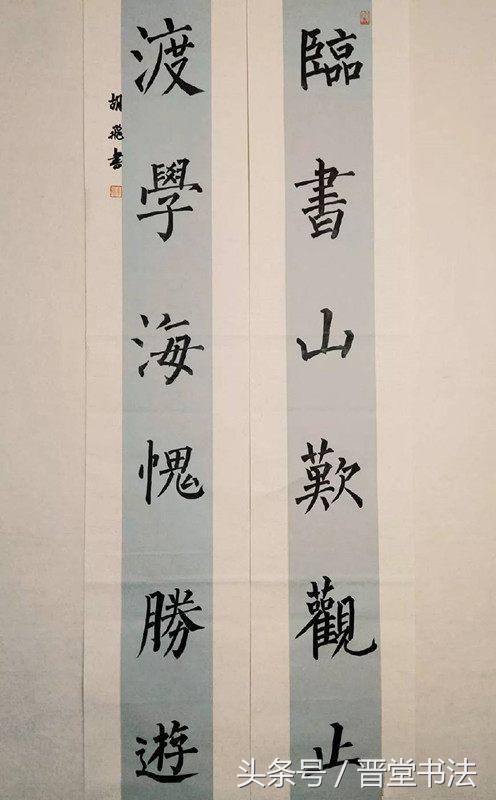 臨書山歎觀止
渡學海愧勝遊
胡飛書
头条号 / 晋堂书法